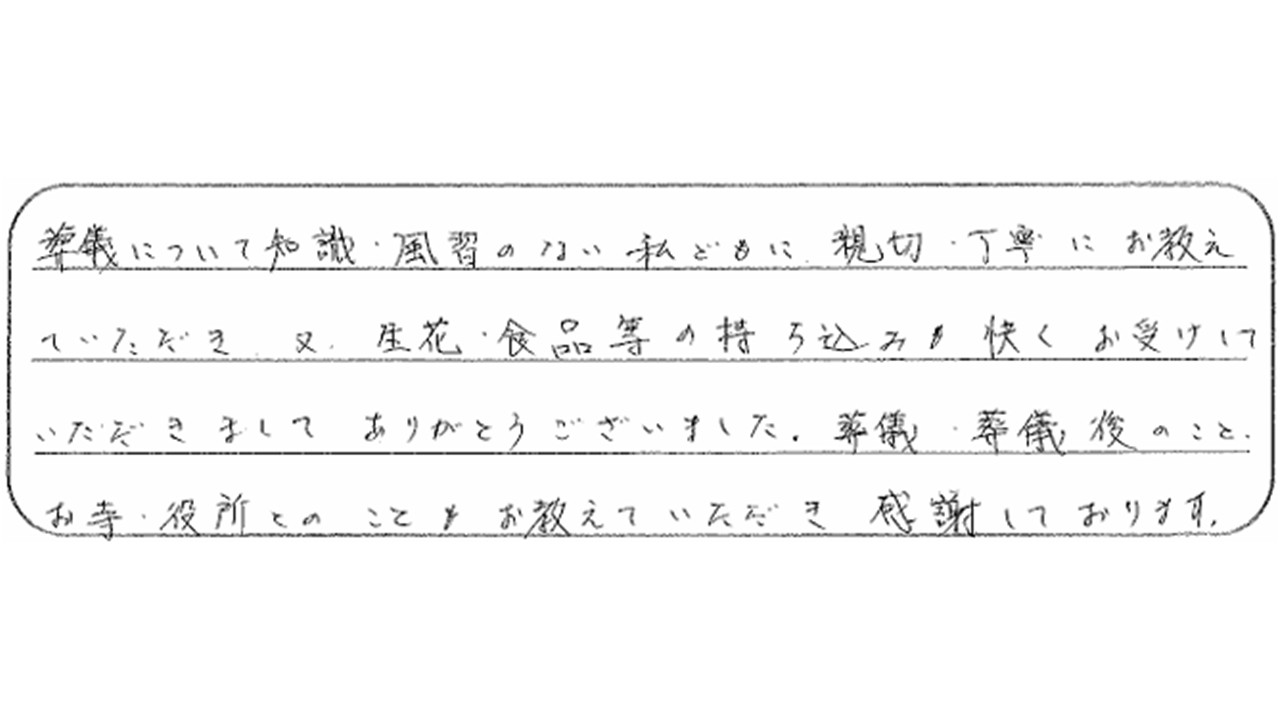 葬儀について知識・風習のない私どもに、親切・丁寧にお教え
ていただき、又、生花・食品等の持ち込みも快くお受けして
いただきまして ありがとうございました。葬儀・葬儀後のこと、
お寺・役所とのことも お教えていただき 感謝しております。